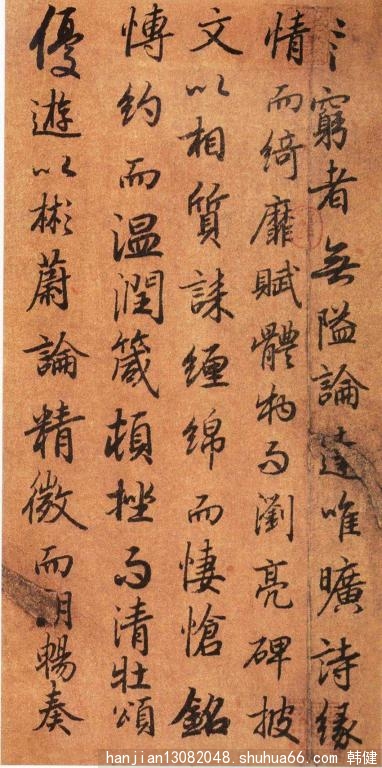 言窮者無隘論達唯曠詩緣
情而綺靡賦體物而瀏亮碑披
文以相質誄纏綿而悽愴銘
博約而温潤箴頓挫而清壯頌
優遊以彬蔚論精微而朗暢奏
hanjian13082048.shuhua66.com 韩健